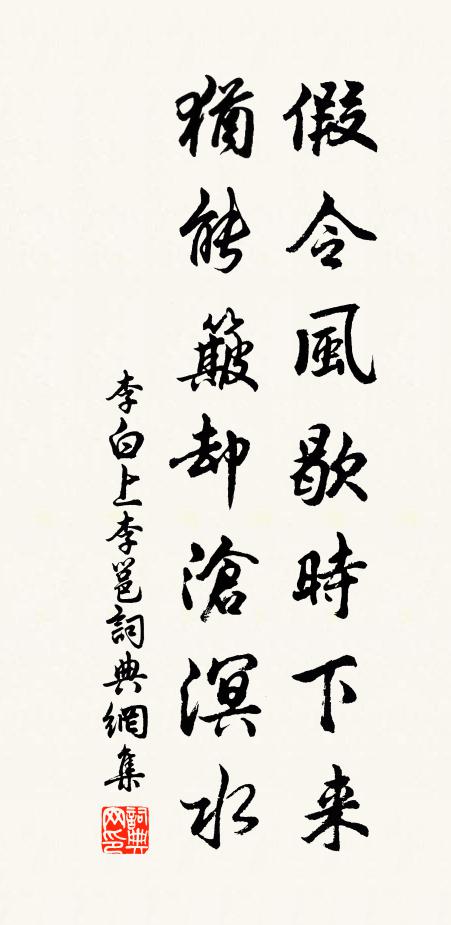 假令風歇時下来
猶能簸却滄溟水
李白上李邕詞典網集
詞典网印